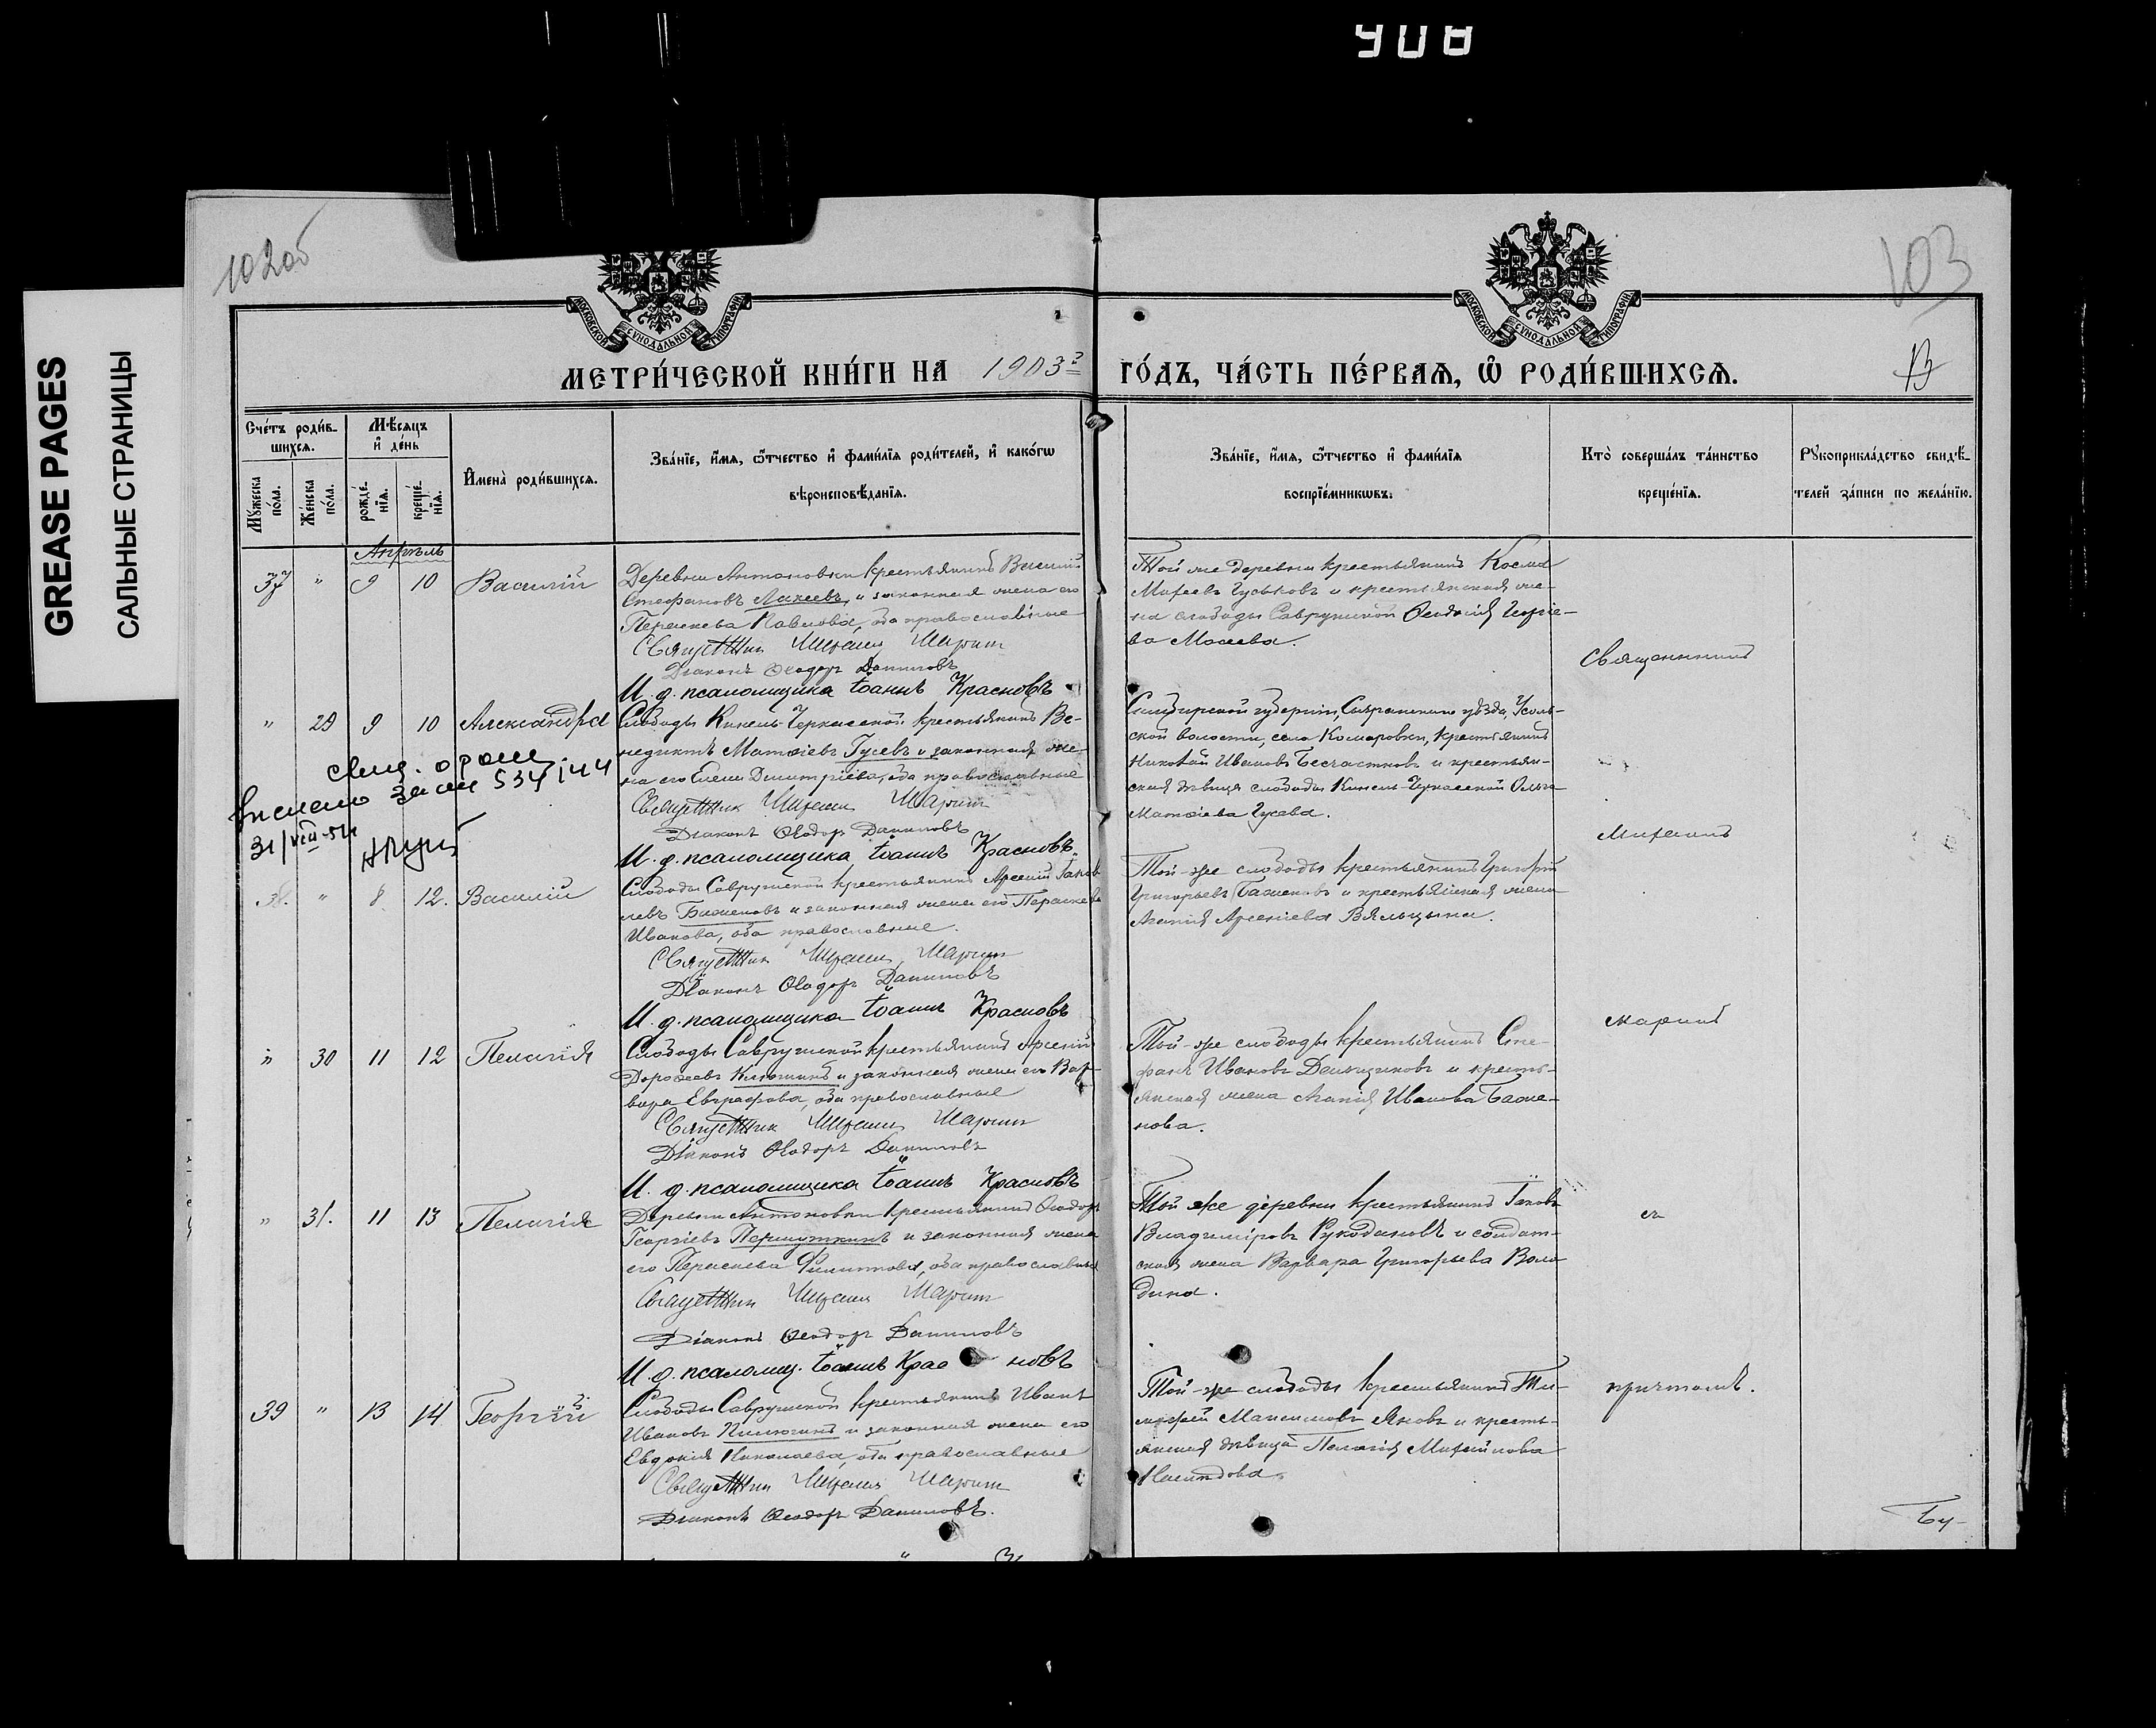 908
GREASE PAGES
САЛЬНЫЕ СТРАНИЦЫ
102об
103
МОСКОВСКОЙ СѴНОДАЛЬНОЙ ТИПОГРАФІИ
МОСКОВСКОЙ СѴНОДАЛЬНОЙ ТИПОГРАФІИ
МЕТРИ́ЧЕСКОЙ КНИ́ГИ НА 1903 ГО́ДЪ, ЧА́СТЬ ПЕ́РВАѦ, Ѽ РОДИ́ВШИХСѦ.
Сче́тъ роди́в-
шихся.
Мꙋ́жеска по́ла.
Же́нска по́ла.
Мѣ́сяцъ и де́нь
рожде́-нїя.
креще́-нїя.
И҆мена̀ роди́вшихся.
Зва́нїе, и҆́мя, ѻ҆́тчество и҆ фами́лїя роди́телей, и҆ како́гѡ
вѣроисповѣ́данїя.
Зва́нїе, и҆́мя, ѻ҆́тчество и҆ фами́лїя
воспрїе́мникѡвъ.
Кто̀ соверша́лъ та́инство
креще́нїя.
Рꙋкоприкла́дство свидѣ́-
телей за́писи по жела́нїю.
Апрѣль
37 " 9 10 Василій
Деревни Антоновки крестьянинъ Василій
Стефановъ Михеевъ, и законная жена его
Параскева Павлова, оба православные
Священникъ Михаилъ Маринъ
Діаконъ Ѳеодоръ Даниловъ
И. д. псаломщика Іоаннъ Красновъ
Той же деревни крестьянинъ Косма
Михеевъ Гуськовъ и крестьянская же-
на слободы Саврушской Ѳеодосія Георгіе-
ва Мосеева.
" 29 9 10 Александра
Слободы Кинель-Черкасской крестьянинъ Ве-
недиктъ Матѳіевъ Гусевъ и законная же-
на его Елена Димитріева, оба православные
Священникъ Михаилъ Маринъ
Діаконъ Ѳеодоръ Даниловъ
И. д. псаломщика Іоаннъ Красновъ.
Симбирской губерніи, Сызранского уѣзда, Усоль-
ской волости, села Комаровки, крестьянинъ
Николай Ивановъ Бесчастновъ и крестьян-
ская дѣвица слободы Кинель-Черкасской Ольга
Матѳіева Гусева.
31/VIII-54
38. " 8 12. Василій
Слободы Саврушской крестьянинъ Арсеній Іаков
левъ Баженовъ и законная жена его Параскева
Иванова, оба православные.
Священникъ Михаилъ Маринъ
Діаконъ Ѳеодоръ Даниловъ
И. д. псаломщика Іоаннъ Красновъ
Той-же слободы крестьянинъ Григорій
Григорьевъ Баженовъ и крестьянская жена
Агапія Арсеніева Вяльцына.
" 30 11 12 Пелагія
Слободы Саврушской крестьянинъ Арсеній
Дороѳеевъ Килюшинъ и законная жена его Вар-
вара Евграфова, оба православные
Священникъ Михаилъ Маринъ
Діаконъ Ѳеодоръ Даниловъ
И. д. псаломщика Іоаннъ Красновъ
Той-же слободы крестьянинъ Сте-
фанъ Ивановъ Денщиковъ и кресть-
янская жена Агапія Иванова Баже-
нова.
" 31. 11 13 Пелагія
Деревни Антоновки крестьянинъ Ѳеодоръ
Георгіевъ Першуткинъ и законная жена
его Параскева Филиппова, оба православные
Священникъ Михаилъ Маринъ
Діаконъ Ѳеодоръ Даниловъ
И. д. псаломщ. Іоаннъ Красновъ
Той же деревни крестьянинъ Іаковъ
Владиміровъ Рукодановъ и солдат-
ская жена Варвара Григорьева Воло
дина.
39 " 13 14 Георгій
Слободы Саврушской крестьянинъ Иванъ
Ивановъ Пилюгинъ и законная жена его
Евдокія Николаева, оба православные
Священникъ Михаилъ Маринъ
Діаконъ Ѳеодоръ Даниловъ.
Той-же слободы крестьянинъ Ти-
моѳей Максимовъ Яковъ и кресть-
янская дѣвица Пелагія Михайлова
Священникъ
Михаилъ
Маринъ
съ
причтомъ.
Бу-